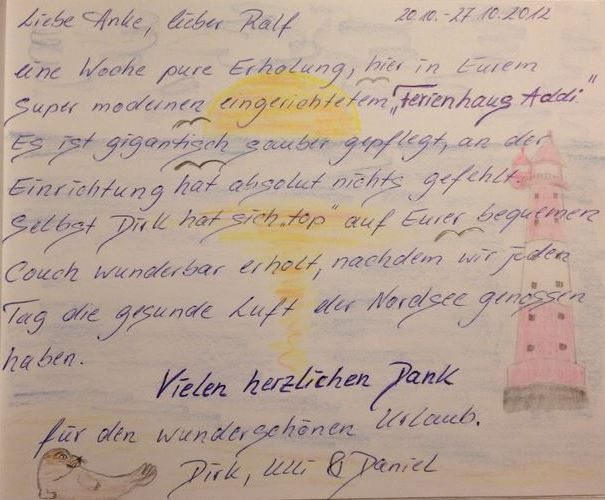 Liebe Anke, lieber Ralf 20.10.-27.10.2012
eine Woche pure Erholung, hier in Eurem
super modernen eingerichtetem „Ferienhaus Addi."
Es ist gigantisch sauber gepflegt, an der
Einrichtung hat absolut nichts gefehlt.
Selbst Dirk hat sich „top" auf Eurer bequemen
Couch wunderbar erholt, nachdem wir jeden
Tag die gesunde Luft der Nordsee genossen
haben.
Vielen herzlichen Dank
für den wunderschönen Urlaub.
Dirk, Ulli & Daniel